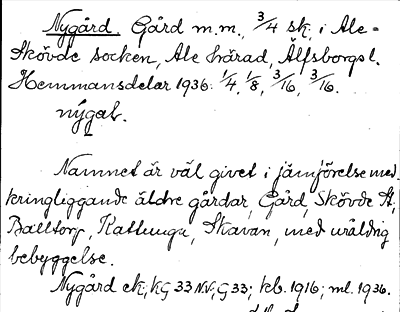 Nygård Gård m.m., 3/4 sk. i Ale-
Skövde socken, Ale härad, Älfsborgs l.
Hemmansdelar 1936: 1/4, 1/8, 3/16, 3/16.
nýgaḷ.
Namnet är väl givet i jämförelse med
kringliggande äldre gårdar, Gård, Skövde St,
Balltorp, Kattunga, Skavan, med uråldrig
bebyggelse.
Nygård ek; kG 33 N.V.; G 33; kb. 1916; ml. 1936.